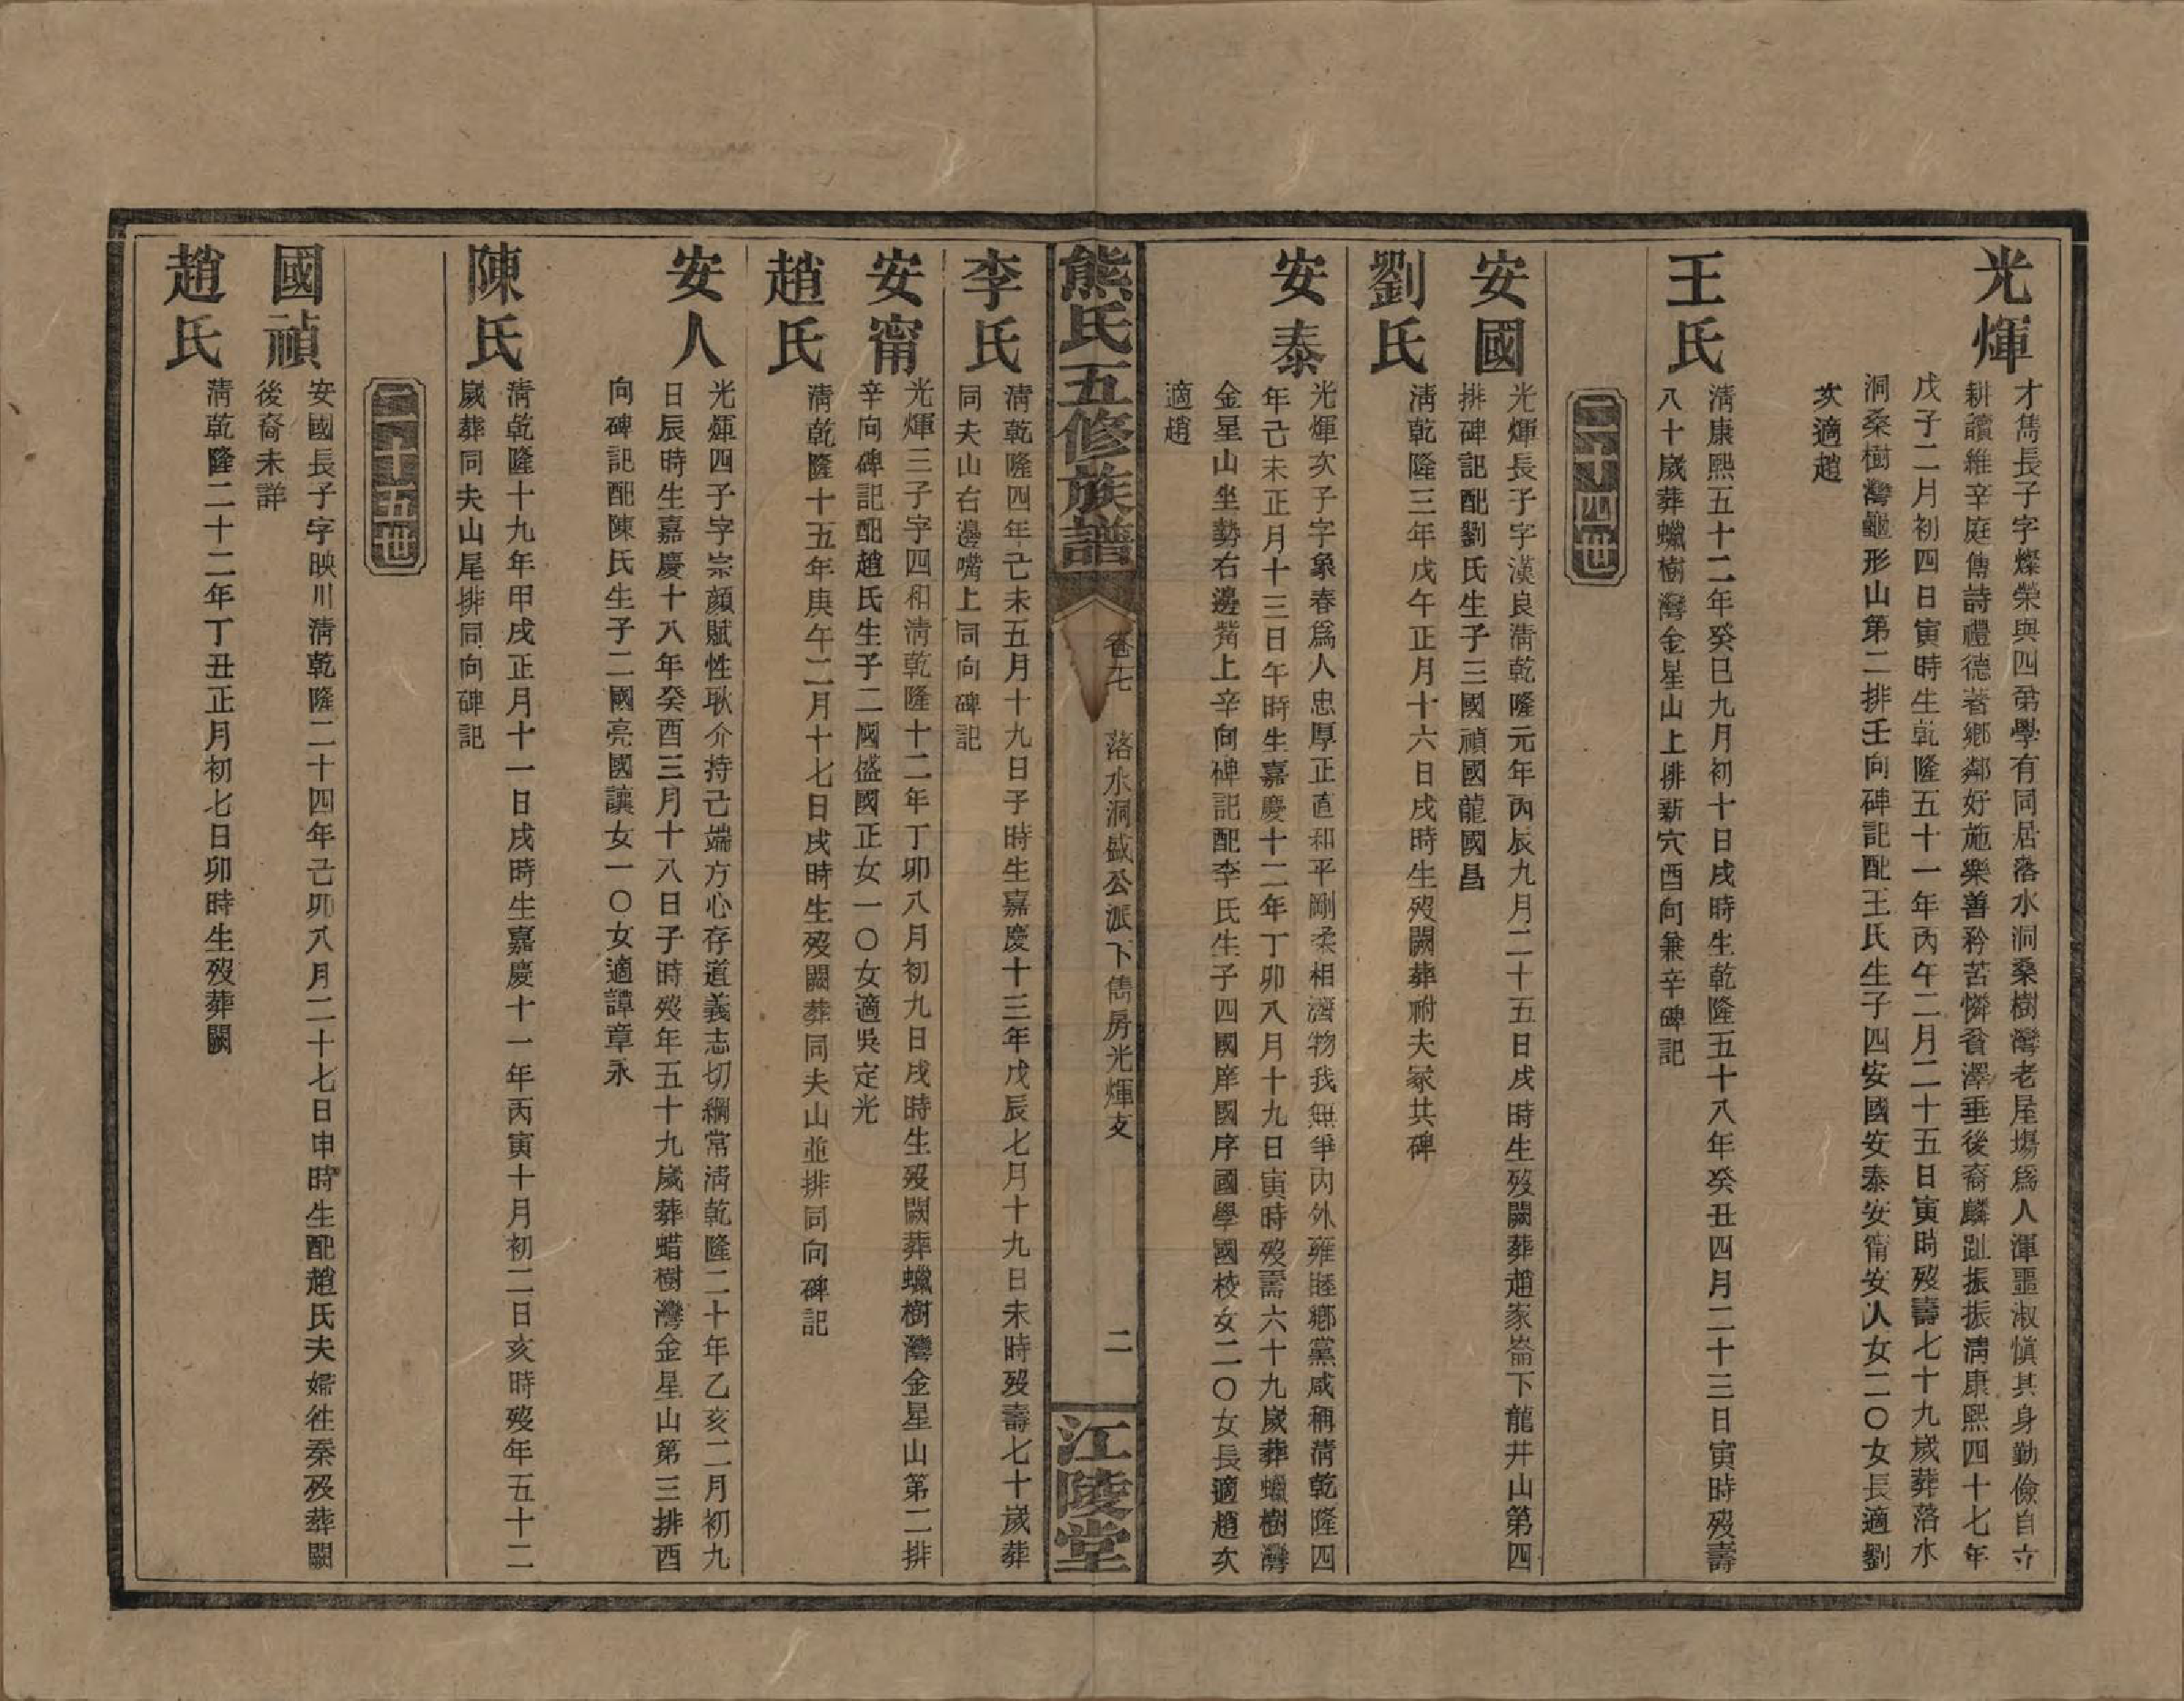 光煇
才雋長子字燦榮與四弟學有同居落水洞桑樹灣老屋塲爲人渾噩淑愼其身勤儉自立
耕讀維辛庭傳詩禮德著鄕鄰好施樂善矜苦憐貧澤垂後裔麟趾振振淸康熙四十七年
戊子二月初四日寅時生乾隆五十一年丙午二月二十五日寅時歿壽七十九歲葬落水
洞桑樹灣龜形山第二排壬向碑記配王氏生子四安國安泰安甯安人女二〇女長適劉
次適趙
王氏
淸康熙五十二年癸巳九月初十日戌時生乾隆五十八年癸丑四月二十三日寅時歿壽
八十歲葬蠟樹灣金星山上排新穴酉向兼辛碑記
二十四世
安國
光煇長子字漢良淸乾隆元年丙辰九月二十五日戌時生歿闕葬趙家崙下龍井山第四
排碑記配劉氏生子三國禎國龍國昌
劉氏
淸乾隆三年戊午正月十六日戌時生歿闕葬祔夫冢共碑
安泰
光煇次子字象春爲人忠厚正直和平剛柔相濟物我無爭内外雍睦鄕黨咸稱淸乾隆四
年己未正月十三日午時生嘉慶十二年丁卯八月十九日寅時歿壽六十九歲葬蠟樹灣
金星山坐勢右邊嘴上辛向碑記配李氏生子四國庠國序國學國校女二〇女長適趙次
適趙
熊氏五修族譜
卷七
落水洞盛公派下雋房光煇支
二
江陵堂
李氏
淸乾隆四年己未五月十九日子時生嘉慶十三年戊辰七月十九日未時歿壽七十歲葬
同夫山右邊嘴上同向碑記
安甯
光煇三子字四和淸乾隆十二年丁卯八月初九日戌時生歿闕葬蠟樹灣金星山第二排
辛向碑記配趙氏生子二國盛國正女一〇女適吳定光
趙氏
淸乾隆十五年庚午二月十七日戌時生歿闕葬同夫山並排同向碑記
安人
光煇四子字宗顔賦性耿介持己端方心存道義志切綱常淸乾隆二十年乙亥二月初九
日辰時生嘉慶十八年癸酉三月十八日子時歿年五十九歲葬蜡樹灣金星山第三排酉
向碑記配陳氏生子二國亮國讓女一〇女適譚章永
陳氏
淸乾隆十九年甲戌正月十一日戌時生嘉慶十一年丙寅十月初二日亥時歿年五十二
歲葬同夫山尾排同向碑記
二十五世
國禎
安國長子字映川淸乾隆二十四年己卯八月二十七日申時生配趙氏夫婦徃秦歿葬闕
後裔未詳
趙氏
淸乾隆二十二年丁丑正月初七日卯時生歿葬闕